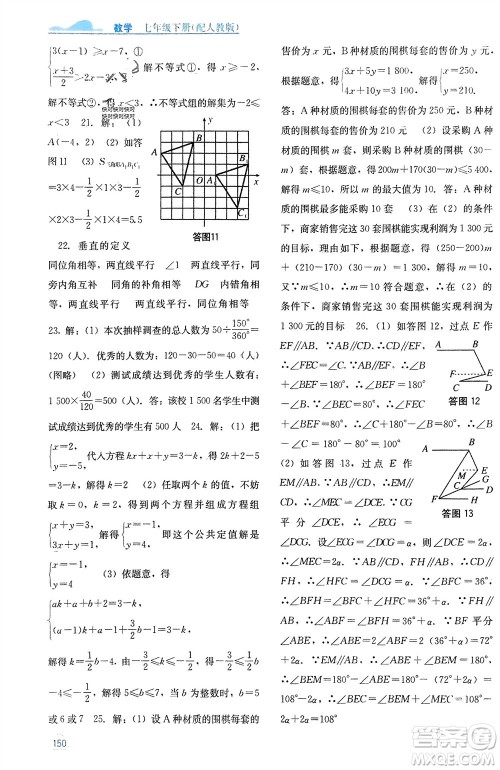 数学 七年级下册(配人教版)
3(x-1)
x+3/2
解不等式①
解不等式②,得 x<3 ∴不等式组的解集为
x<3 21. 解:(1)
A(-4,2) (2)如答
图11 (3)S△A₁B₁C₁
=3×4-1/2×1×3-1/2
×2×3-1/2×1×4=5.5
答图11
22. 垂直的定义
同位角相等,两直线平行 ∠1 两直线平行,同
旁内角互补 同角的补角相等 DG 内错角相
等,两直线平行
23. 解:(1)本次抽样调查的总人数为50÷150°/360°=
120(人).优秀的人数为120-20-50=50(人)
(图略) (2)测试成绩达到优秀的学生人数有:
1 500×40/120=500(人). 答:该校1 500名学生中测
试成绩达到优秀的学生有500人 24. 解:(1)把
{x=2, y=-5 代入方程kx+y=3-k,得2k+2-5=3
-k,解得k=2 (2)任取两个方程并组成方程组
{x+y=3, 2x+y=2, 解得{x=-1, y=4, 即这个公共定值解是
{x=-1, y=4 (3)依题意,得
{ak+a+b/2=3-k, (a-1)k+a+3/2b=3-k,
解得k=1/2b-4. ∵-1≤k≤0,∴-1≤1/2b
-4≤0,∴6≤b≤8. ∴整数b的值为5
或6或7 25. 解:(1)设A种材质的围棋每套的
150
售价为x元,B种材质的围棋每套的售价为y元,
根据题意,得{3x+5y=1 800, 4x+10y=3 100, 解得{x=250, y=210.
答:A种材质的围棋每套的售价为250元,B种材
质的围棋每套的售价为210元 (2)设采购A种
材质的围棋m套,则采购B种材质的围棋(30-
m)套.根据题意,得200m+170(30-m)≤5 400,
解得m≤10,∴m的最大值为10. 答:A种材质的
围棋最多能采购10套 (3)在(2)的条件下,商
家销售完这30套围棋能实现利润为1 300元.
根据题意,得(250-200)m+(210-170)(30-m)
=1 300,解得m=10. ∵
m≤10,∴m=10符合题意. 答:在(2)的
条件下,商家销售完这30套围棋能实现利润为
1 300元 26. (1)如答图12,过点E作
EF∥AB. ∵AB∥CD,∴EF∥CD,
∴∠FEC=∠C=20°,∴∠BEF=
∠BEC-∠FEC=100°-20°=
80°. ∵EF∥AB,∴∠ABE+
∠BEF=180°,∴∠ABE=180°-
∠BEF=180°-80°=100°
答图12
(2)如答图13,过点E作
EM∥AB. ∵AB∥CD,∴
EM∥CD. ∵CG
平分∠DCE,设∠ECG=∠DCG=α,
∴∠DCE=2α. ∵EM∥CD,
∴∠MEC=∠DCE=2α. ∵AB∥CD,FH∥AB,
∴FH∥CD,∴∠HFC=∠DCG=α,∴∠BFH=
∠BFC+∠HFC=36°+α. ∵FH∥AB,∴∠ABF=
∠BFH=36°+α. ∵BF平分∠ABE,
∴∠ABE=2∠ABF=2(36°+α)=72°
+2α. ∵EM∥AB,∴∠ABE+∠BEM=180°,
∴∠BEM=180°-∠ABE=180°-(72°+2α)=
108°-2α,∴∠BEC=∠BEM+∠MEC=
108°-2α+2α=108°
答图13